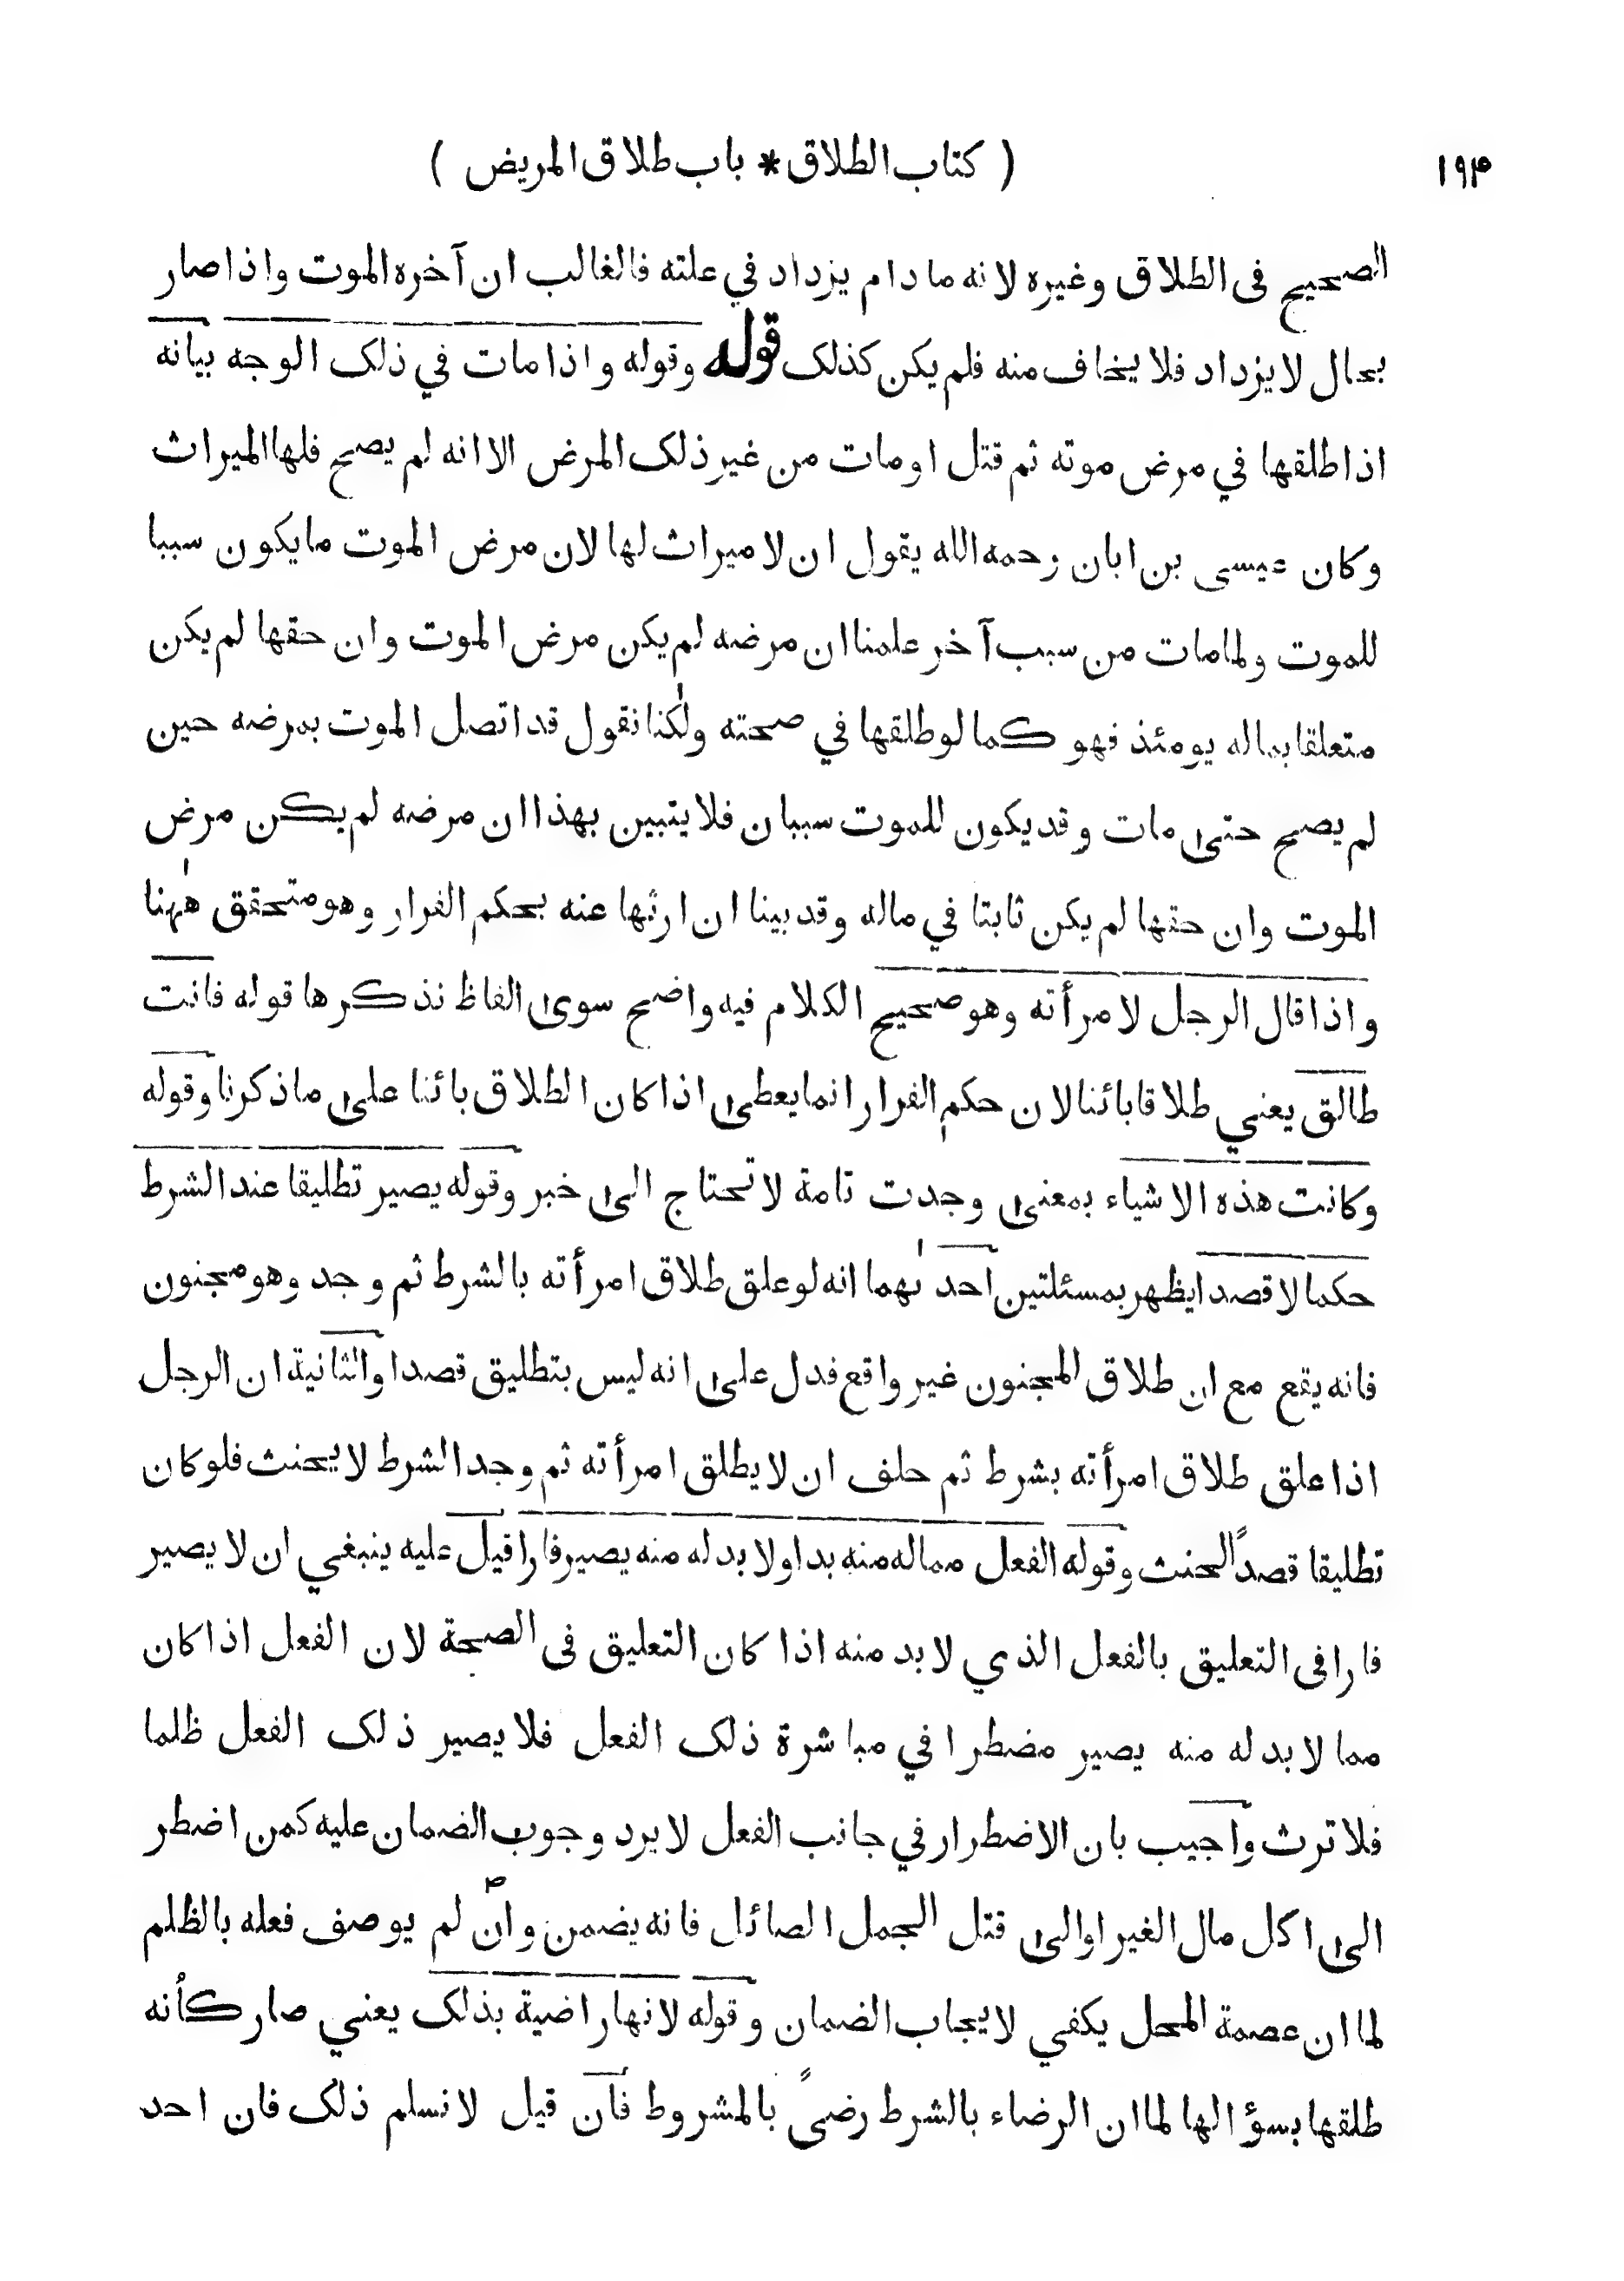 ( كتاب الطلاق * باب طلاق المريض ) ١٩٤
الصحيح فى الطلاق وغيره لانه مادام يزداد في علته فالغالب ان آخره الموت واذا صار
بحال لا يزداد فلا يخاف منه فلم يكن كذلك قوله وقوله واذا مات في ذلك الوجه بيانه
اذا طلقها في مرض موته ثم قتل او مات من غير ذلك المرض الا انه لم يصح فلها الميراث
وكان عيسى بن ابان رحمه الله يقول ان لا ميراث لها لان مرض الموت ما يكون سببا
للموت ولما مات من سبب آخر علمنا ان مرضه لم يكن مرض الموت وان حقها لم يكن
متعلقا بماله يومئذ فهو كما لو طلقها في صحته ولكنا نقول قد اتصل الموت بمرضه حين
لم يصح حتى مات وقد يكون للموت سببان فلا يتبين بهذا ان مرضه لم يكن مرض
الموت وان حقها لم يكن ثابتا في ماله وقد بينا ان ارثها عنه بحكم الفرار وهو متحقق ههنا
واذا قال الرجل لامرأته وهو صحيح الكلام فيه واضح سوى الفاظ نذكرها قوله فانت
طالق يعني طلاقا بائنا لان حكم الفرار انما يعطى اذا كان الطلاق بائنا على ما ذكرنا وقوله
وكانت هذه الاشياء بمعنى وجدت تامة لا تحتاج الى خبر وقوله يصير تطليقا عند الشرط
حكما لا قصدا يظهر بمسئلتين احدٰىهما انه لو علق طلاق امرأته بالشرط ثم وجد وهو مجنون
فانه يقع مع ان طلاق المجنون غير واقع فدل على انه ليس بتطليق قصدا والثانية ان الرجل
اذا علق طلاق امرأته بشرط ثم حلف ان لا يطلق امرأته ثم وجد الشرط لا يحنث فلو كان
تطليقا قصدًا لحنث وقوله الفعل مما له منه بد او لا بد له منه يصير فارا قيل عليه ينبغي ان لا يصير
فارا فى التعليق بالفعل الذي لا بد منه اذا كان التعليق فى الصحة لان الفعل اذا كان
مما لا بد له منه يصير مضطرا في مباشرة ذلك الفعل فلا يصير ذلك الفعل ظلما
فلا ترث واجيب بان الاضطرار في جانب الفعل لا يرد وجوب الضمان عليه كمن اضطر
الى اكل مال الغير او الى قتل الجمل الصائل فانه يضمن وان لم يوصف فعله بالظلم
لما ان عصمة المحل يكفي لايجاب الضمان وقوله لانها راضية بذلك يعني صار كأنه
طلقها بسؤالها لما ان الرضاء بالشرط رضىً بالمشروط فان قيل لا نسلم ذلك فان احد